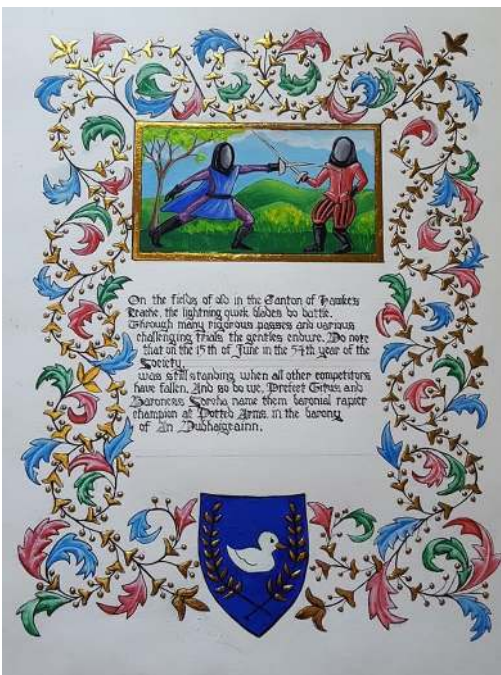 On the fields of old in the Canton of Hawkes
Reache, the lightning quick blades do battle.
Through many rigorous passes and various
challenging trials the gentles endure. Do note
that on the 15th of June in the 54th year of the
Society,
was still standing when all other competitors
have fallen. And so do we, Prefect Titus and
Baroness Sorcha name them baronial rapier
champion at Potted Arms, in the barony
of An Dubhaigeainn.